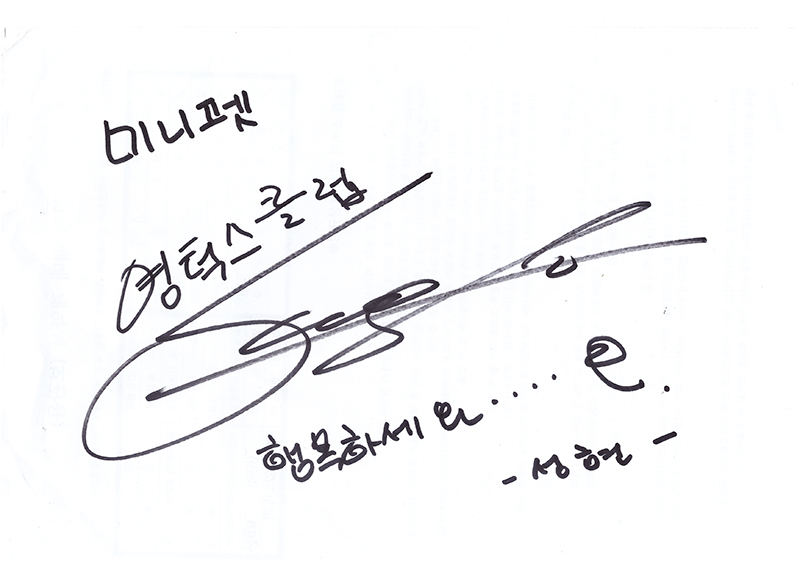 미니펫
영턱스클럽
행복하세요.....
- 성현 -